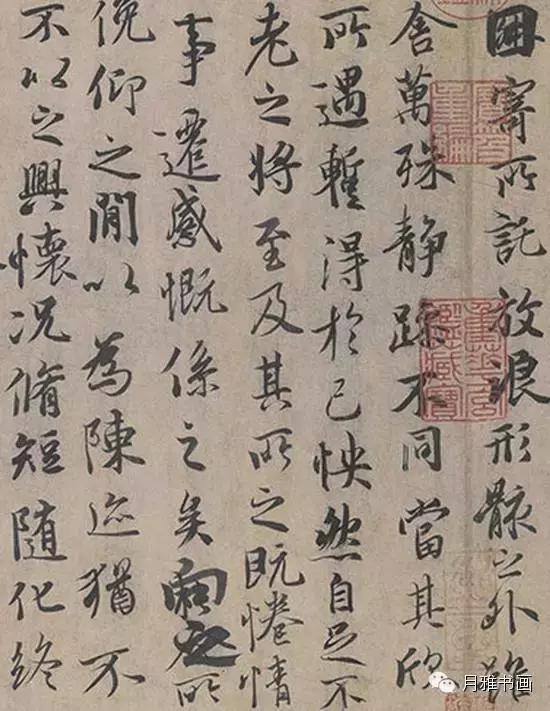 因寄所託放浪形骸之外雖
舍萬殊静躁不同當其欣
所遇蹔得於己怏然自足不
老之將至及其所之既惓情
事遷感慨係之矣向之所
俛仰之閒以為陳迹猶不
不以之興懷況脩短隨化終
月雅书画